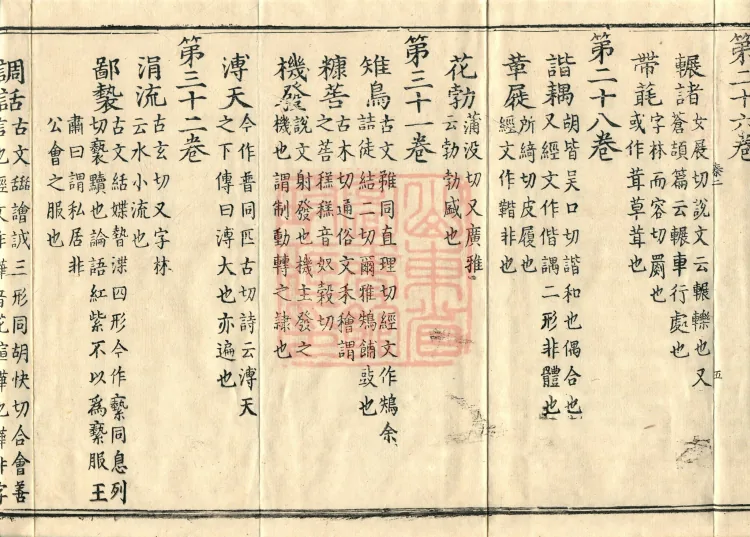 第二十六卷
輾諸 女展切說文云輾轢也又
蒼頡篇云輾車行處也
帶 字林而容切罽也
或作茸草茸也
第二十八卷
諧耦 胡皆吴口切諧和也偶合也
又經文作偕踽二形非體也
韋屣 所綺切皮履也
經文作鞜非也
花勃 蒲没切又廣雅
云勃勃盛也
第三十一卷
雉鳥 古文鴙同直理切經文作鴩余
詰徒結二切爾雅鴩餔豉也
糠 古木切通俗文禾穭謂
之 音奴穀切
機發 說文射發也機主發之
機也謂制動轉之隷也
溥天 今作普同匹古切詩云溥天
之下傳曰溥大也亦遍也
第三十二卷
涓流 古玄切又字林
云水小流也
鄙褻 古文絬媟暬渫四形今作褻同息列
切褻黷也論語紅紫不以爲褻服王
肅曰謂私居非
公會之服也
調話 古文譮諙三形同胡快切合會善
言也經文作譁音花諠譁也譁非字
卷二
五